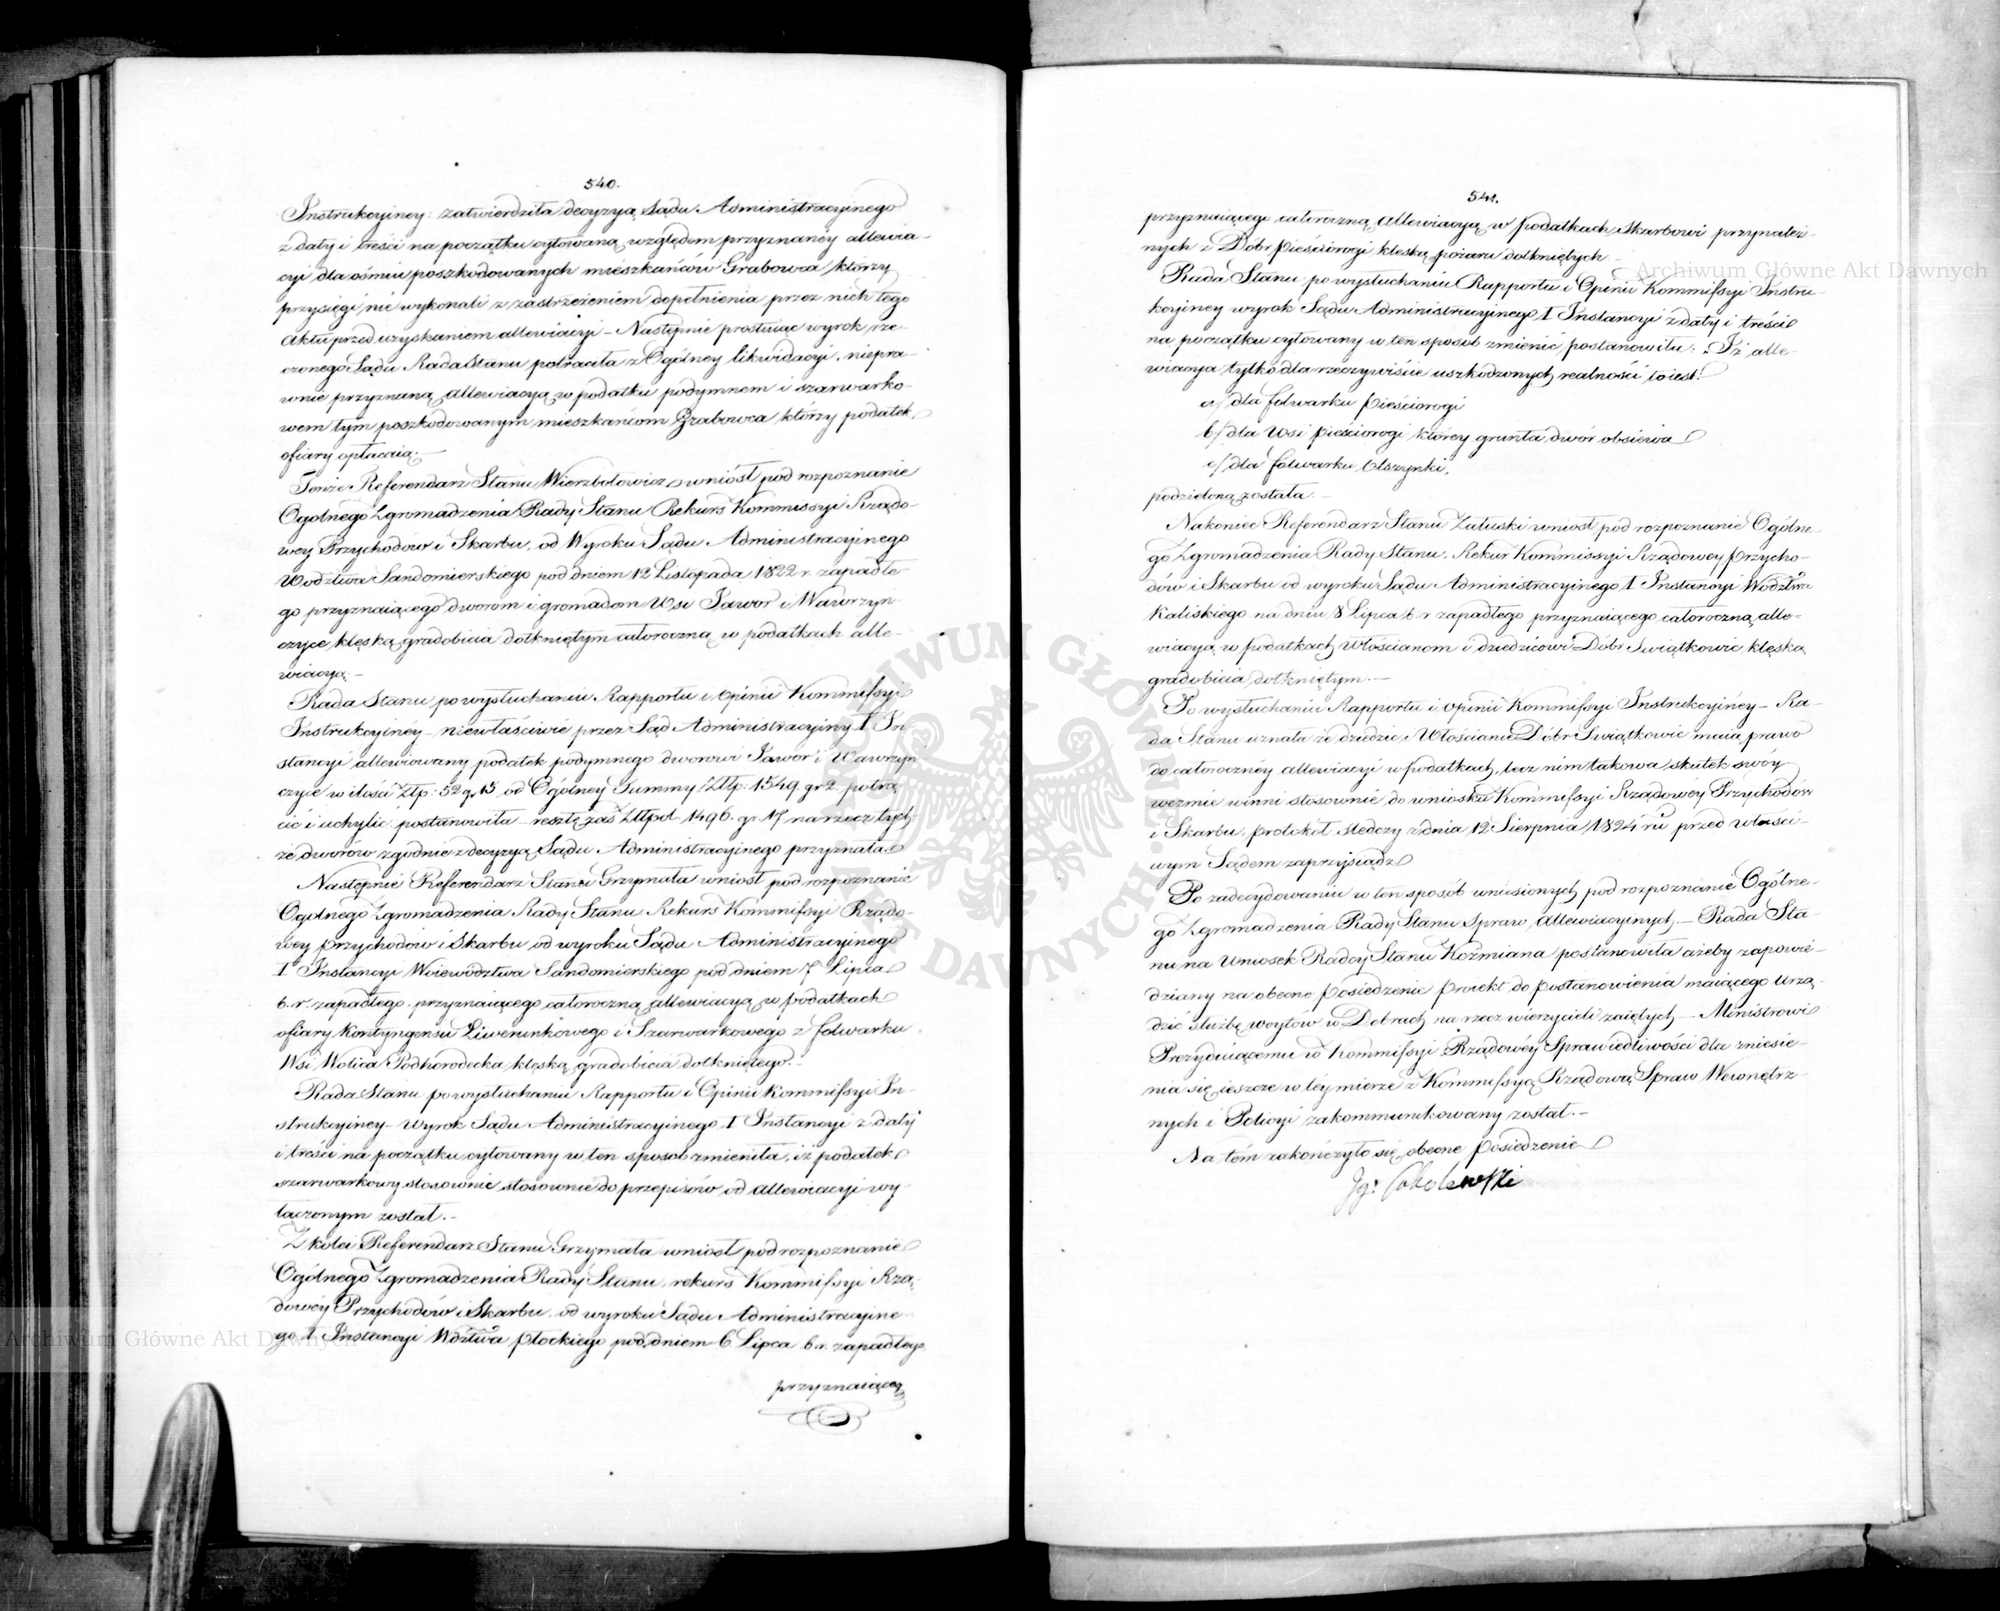 540.
Instrukcyiney: zatwierdziła decyzyą Sądu Administracyinego
z daty i treści na początku cytowaną względem przyznanéy allewia-
cyi dla ośmiu poszkodowanych mieszkańców Grabowca, którzy
przysięgi nie wykonali z zastrzeżeniem dopełnienia przez nich tego
Aktu przed uzyskaniem allewiacyi – Następnie prostuiąc wyrok rze-
czonego Sądu Rada Stanu potrąciła z Ogólney likwidacyi, niepra-
wnie przyznaną allewiacyą w podatku podymnem i szarwarko-
wem tym poszkodowanym mieszkańcom Grabowca którzy podatek
ofiary opłacaią. –
Tenże Referendarz Stanu Wierzbołowicz wniósł pod rozpoznanie
Ogólnego Zgromadzenia Rady Stanu Rekurs Kommissyi Rządo-
wey Przychodów i Skarbu, od Wyroku Sądu Administracyinego
Wodztwa Sandomierskiego pod dniem 12 Listopada 1822 r. zapadłe-
go przyznaiącego dworom i gromadom Wsi Jawor i Wawrzyn-
czyce klęską gradobicia dotkniętym całoroczną w podatkach alle-
wiacyą. –
Rada Stanu po wysłuchaniu Rapportu i Opinii Kommissyi
Instrukcyinéy – niewłaściwie przez Sąd Administracyiny I In-
stancyi allewiowany podatek podymnego dworowi Jawor i Wawrzyn
czyce w ilości Złp: 52 g. 15 od Ogólney Summy Złłp: 1549 gr 2. potrą
cić i uchylić postanowiła – resztę zaś Złłpol. 1496. gr. 17 na rzecz tych
że dworów zgodnie z decyzyą Sądu Administracyinego przyznała.
Następnie Referendarz Stanu Grzymała wniosł pod rozpoznanie
Ogolnego Zgromadzenia Rady Stanu Rekurs Kommissyi Rządo-
wey Przychodów i Skarbu od wyroku Sądu Administracyinego
I Instancyi Woiewództwa Sandomierskiego pod dniem 7 Lipca
b. r. zapadłego, przyznaiącego całoroczną allewiacyą w podatkach
ofiary Kontyngensu Liwerunkowego i Szarwarkowego z folwarku
Wsi Wolica Podhorodecka klęską gradobicia dotkniętego. –
Rada Stanu po wysłuchaniu Rapportu i Opinii Kommissyi In-
strukcyiney – Wyrok Sądu Administracyinego I Instancyi z daty
i treści na początku cytowany w ten sposob zmieniła, iż podatek
szarwarkowy stosownie stosownie do przepisów od Allewiacyi wy
łączonym został. –
Z kolei Referendarz Stanu Grzymała wniosł pod rozpoznanie
Ogólnego Zgromadzenia Rady Stanu, rekurs Kommissyi Rzą-
dowéy Przychodów i Skarbu, od wyroku Sądu Administracyine-
go I Instancyi Wdztwa Płockiego pod dniem 6 Lipca b. r. zapadłego
przyznaiące
541.
przyznaiącego całoroczną allewiacyą w podatkach Skarbowi przynależ-
nych z Dóbr Pieściorogi klęską pożaru dotkniętych –
Rada Stanu po wysłuchaniu Rapportu i Opinii Kommissyi Instru-
kcyiney wyrok Sądu Administracyinego I Instancyi z daty i treści
na początku cytowany w ten sposób zmienić postanowiła: Iż alle-
wiacya tylko dla rzeczywiście uszkodzonych realności to iest:
a/ dla folwarku Pieściorogi
b/ dla Wsi Pieściorogi którey grunta dwór obsiewa
c/ dla folwarku Olszynki,
podzieloną została. –
Nakoniec Referendarz Stanu Załuski wniosł pod rozpoznanie Ogólne-
go Zgromadzenia Rady Stanu, Rekur Kommissyi Rządowey Przycho-
dów i Skarbu od wyroku Sądu Administracyinego I Instancyi Wodztwa
Kaliskiego na dniu 8 Lipca b. r zapadłego przyznaiącego całoroczną alle-
wiacyą w podatkach Włościanom i dziedzicowi Dóbr Swiątkowic klęską
gradobicia dotkniętym. –
Po wysłuchaniu Rapportu i opinii Kommissyi Instrukcyinéy – Ra-
da Stanu uznała że dziedzic i Włościanie Dóbr Swiątkowic maią prawo
do całorocznéy allewiacyi w podatkach, lecz nim takowa skutek swóy
wezmie winni stosownie do wniosku Kommissyi Rządowey Przychodów
i Skarbu, protokół śledczy z dnia 12 Sierpnia 1824 ru przed właści-
wym Sądem zaprzysiądz
Po zadecydowaniu w ten sposób wniesionych pod rozpoznanie Ogólne-
go Zgromadzenia Rady Stanu Spraw Allewiacyinych – Rada Sta-
nu na Wniosek Radcy Stanu Koźmiana postanowiła ażeby zapowie-
dziany na obecne Posiedzenie Proiekt do Postanowienia maiącego urzą-
dzić służbę woytów w Dobrach na rzecz wierzycieli zaiętych – Ministrowi
Prezyduiącemu w Kommissyi Rządowéy Sprawiedliwości dla zniesie-
nia się ieszcze w téy mierze z Kommissyą Rządową Spraw Wewnętrz-
nych i Policyi zakommunikowany został. –
Na tém zakończyło się obecne Posiedzenie
Ig: Sobolewski
Archiwum Główne Akt Dawnych
Archiwum Główne Akt Dawnych
ARCHIWUM GŁÓWNE AKT DAWNYCH